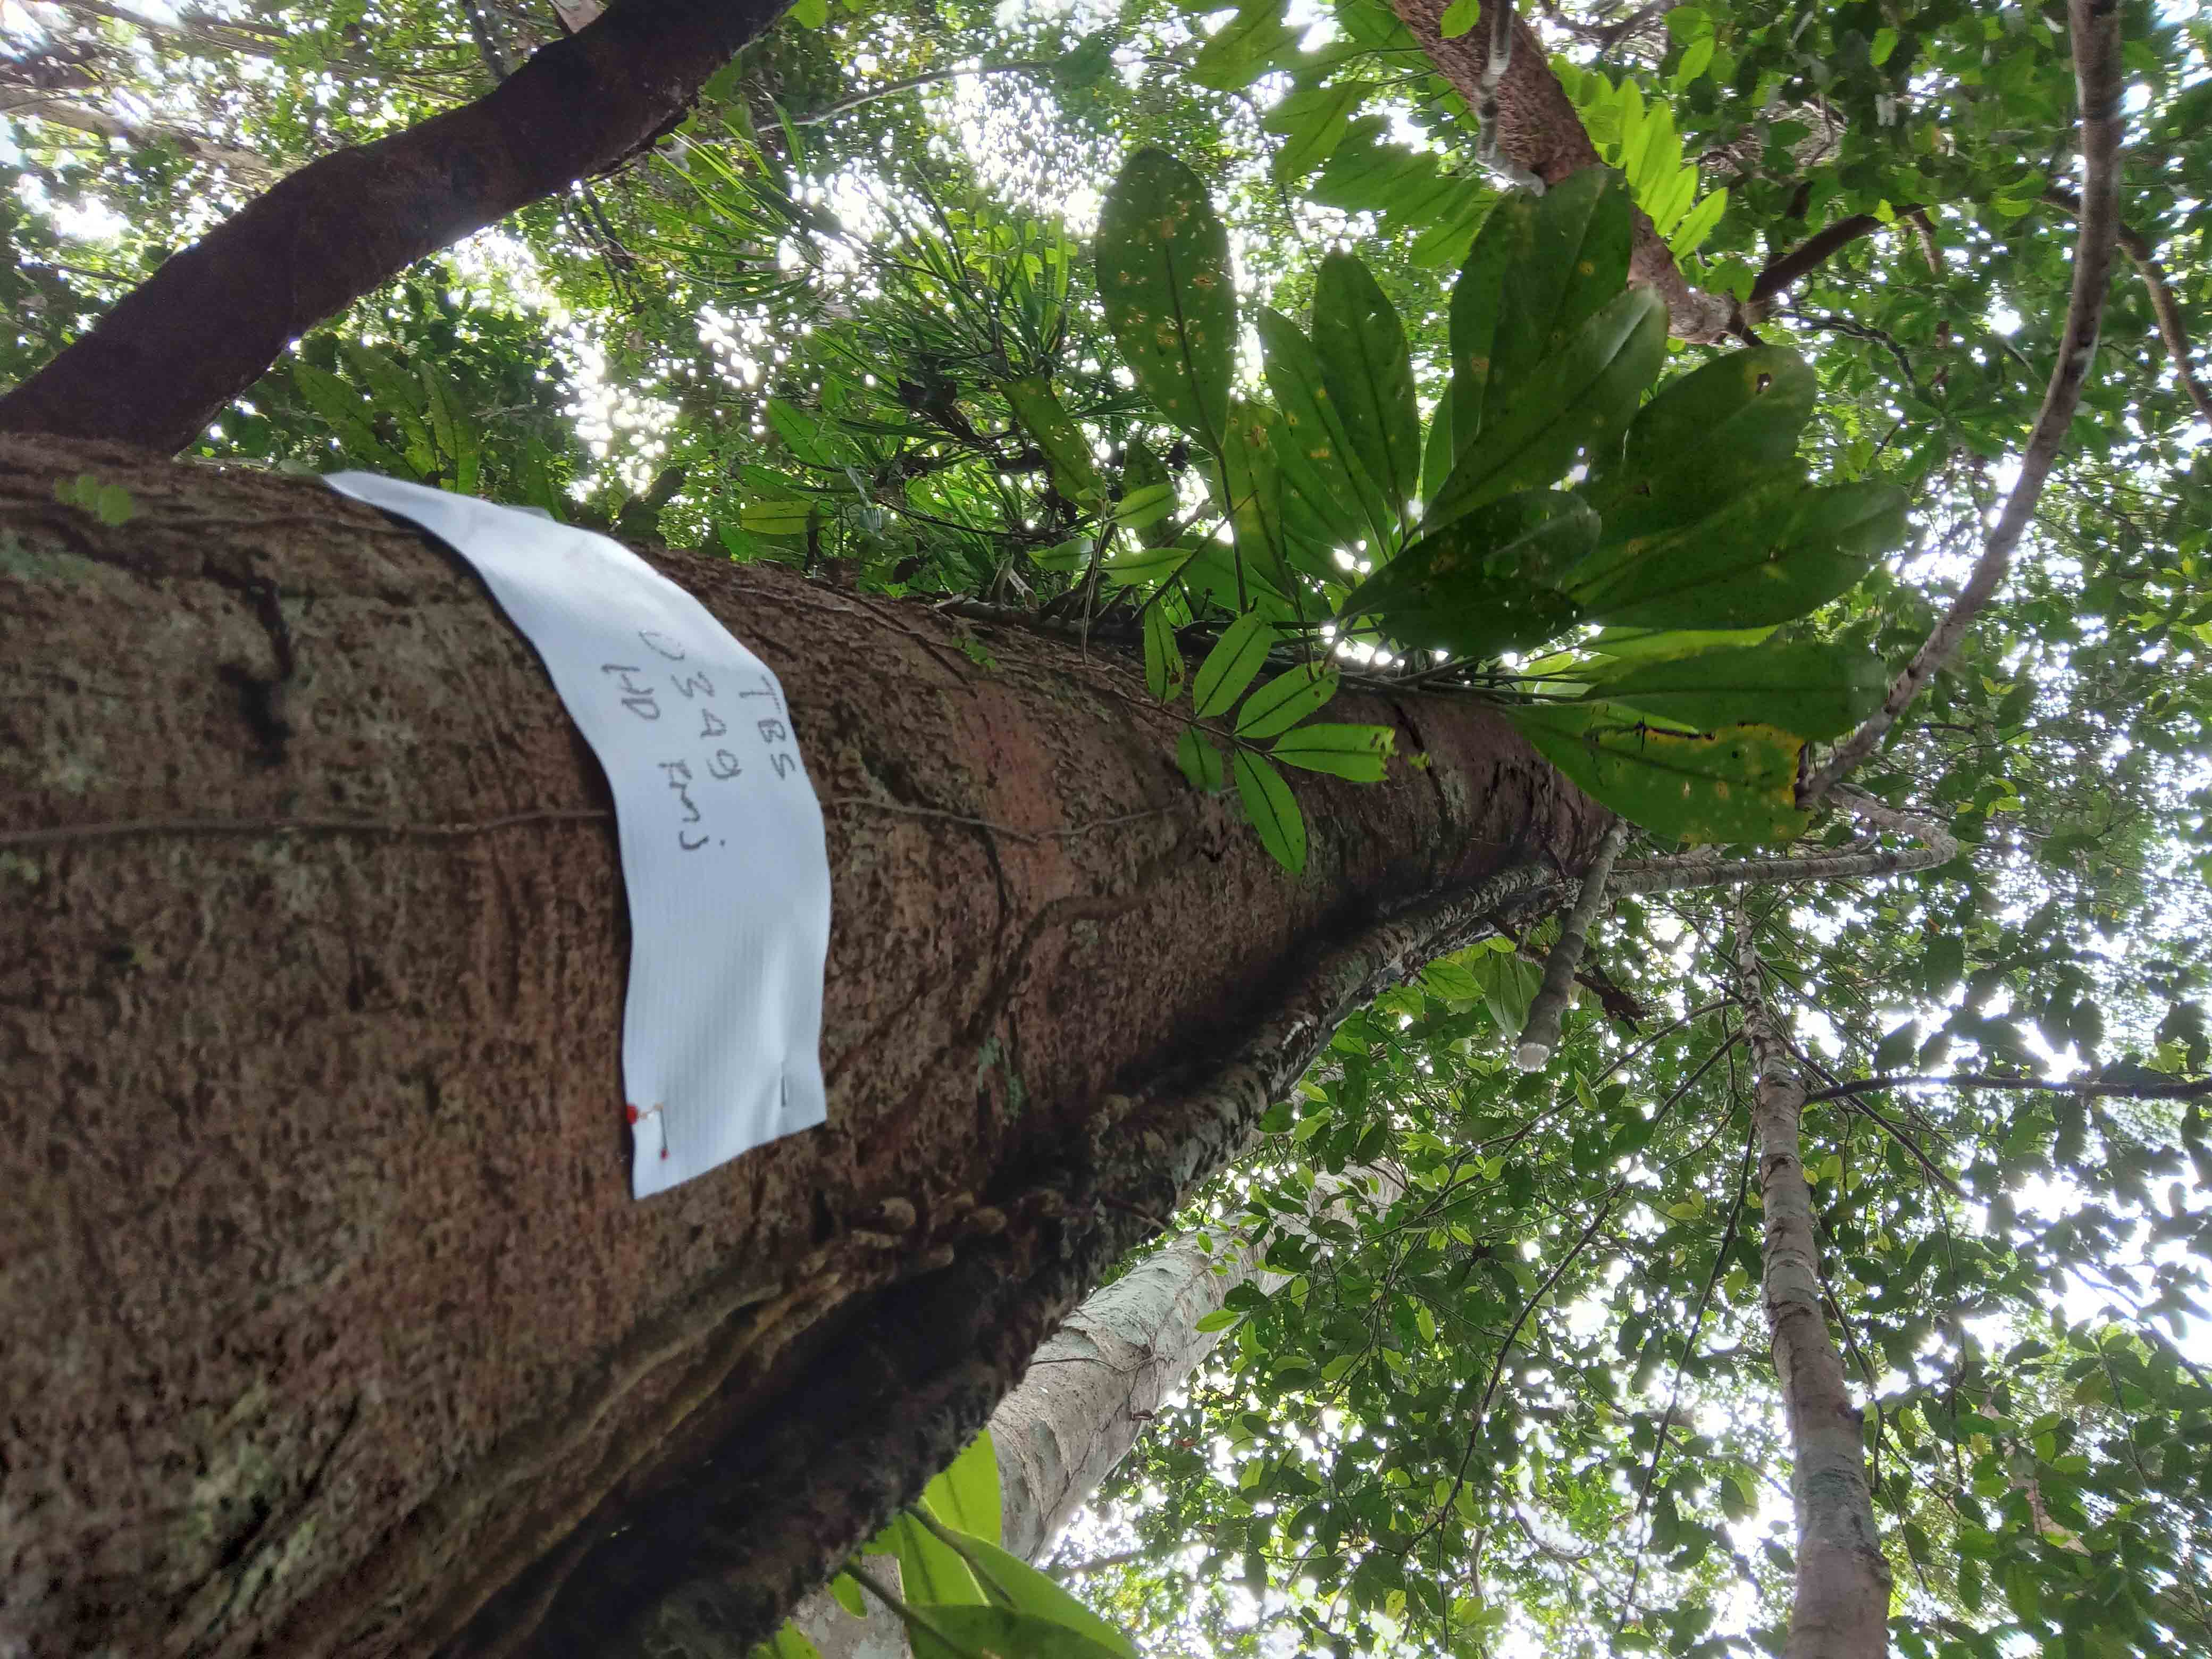 TBS
03499
HP rmj